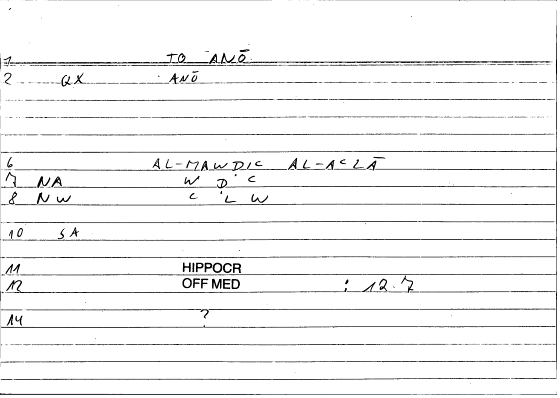 1 TO ANŌ
2 QX ANŌ
6 AL-MAWḌIC AL-ACLĀ
7 NA W Ḍ C
8 NW C L W
10 SA
11 HIPPOCR
12 OFF MED : 12.7
14 ?